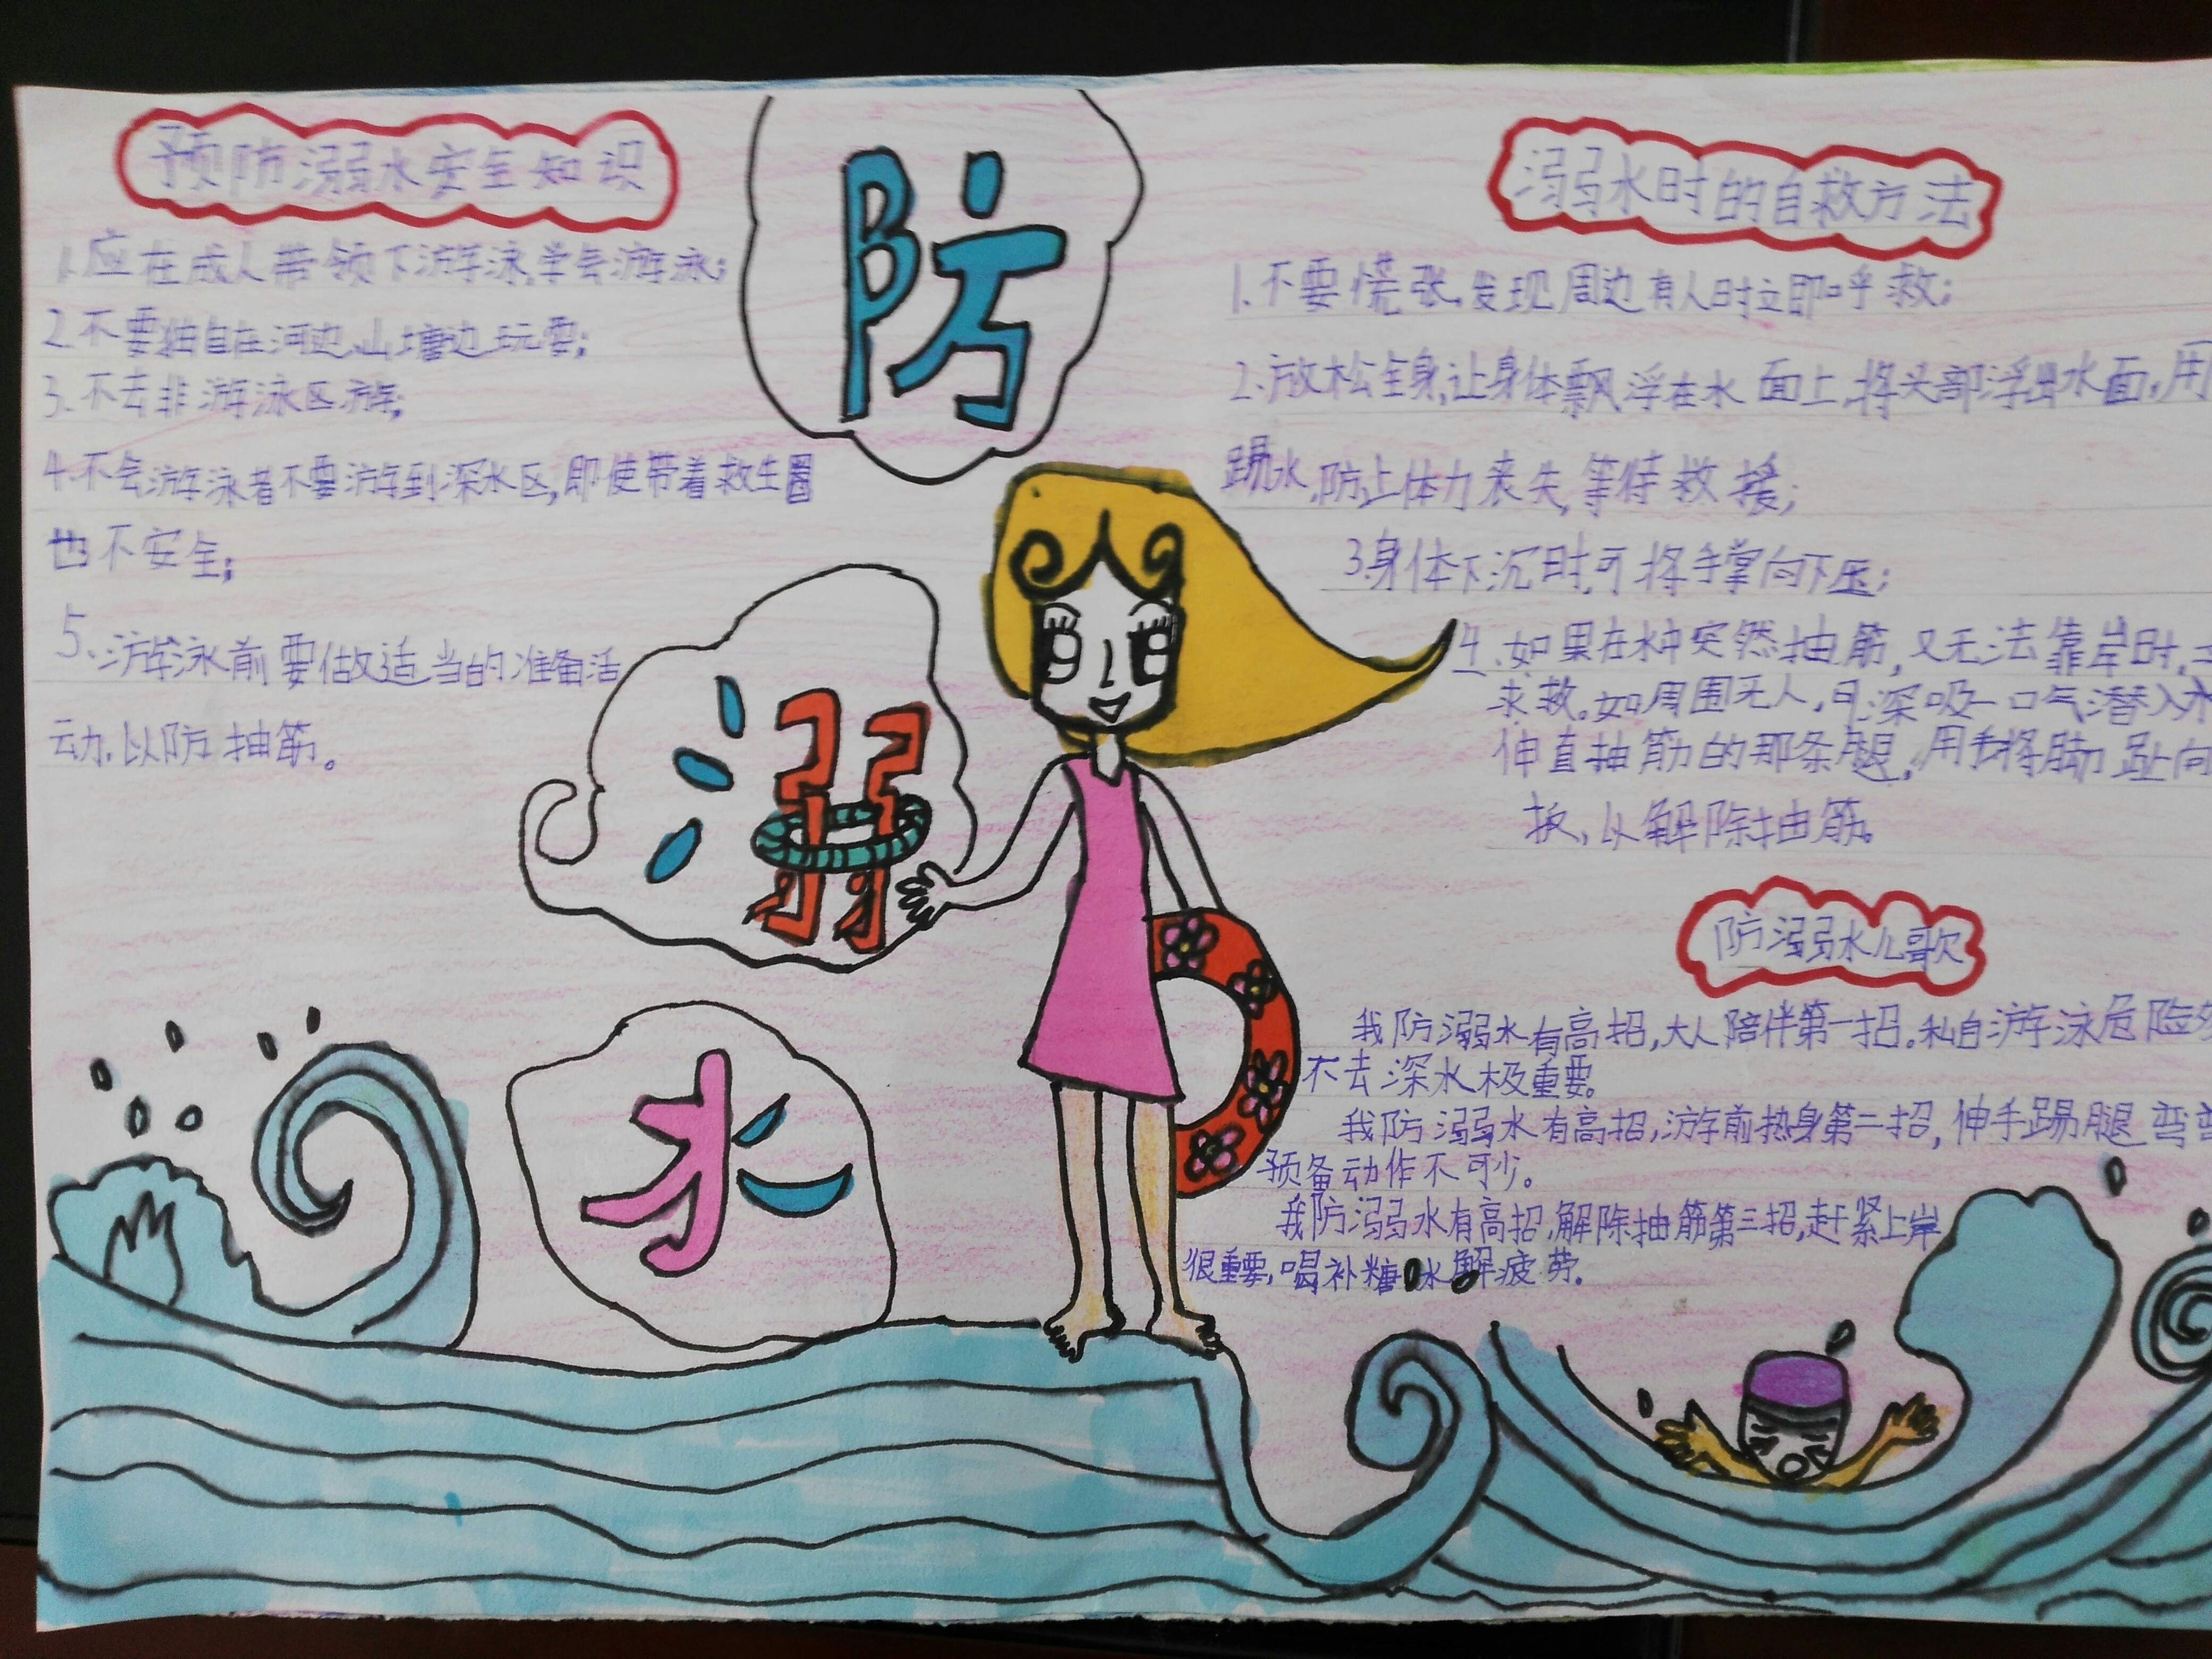 预防溺水安全知识
1.应在成人带领下游泳,学会游泳;
2.不要独自在河边、山塘边玩耍;
3.不去非游泳区游;
4.不会游泳者不要游到深水区,即使带着救生圈
也不安全;
5.游泳前要做适当的准备活
动,以防抽筋。
防
溺
水
溺水时的自救方法
1.不要慌张,发现周边有人时立即呼救;
2.放松全身,让身体飘浮在水面上,将头部浮出水面,用
踢水,防止体力丧失,等待救援;
3.身体下沉时,可将手掌向下压;
4.如果在水中突然抽筋,又无法靠岸时,
求救。如周围无人,可深吸一口气潜入水
伸直抽筋的那条腿,用手将脚趾向
扳,以解除抽筋。
防溺水儿歌
我防溺水有高招,大人陪伴第一招。私自游泳危险
不去深水极重要。
我防溺水有高招,游前热身第二招,伸手踢腿弯
预备动作不可少。
我防溺水有高招,解除抽筋第三招,赶紧上岸
很重要,喝补糖水解疲劳.